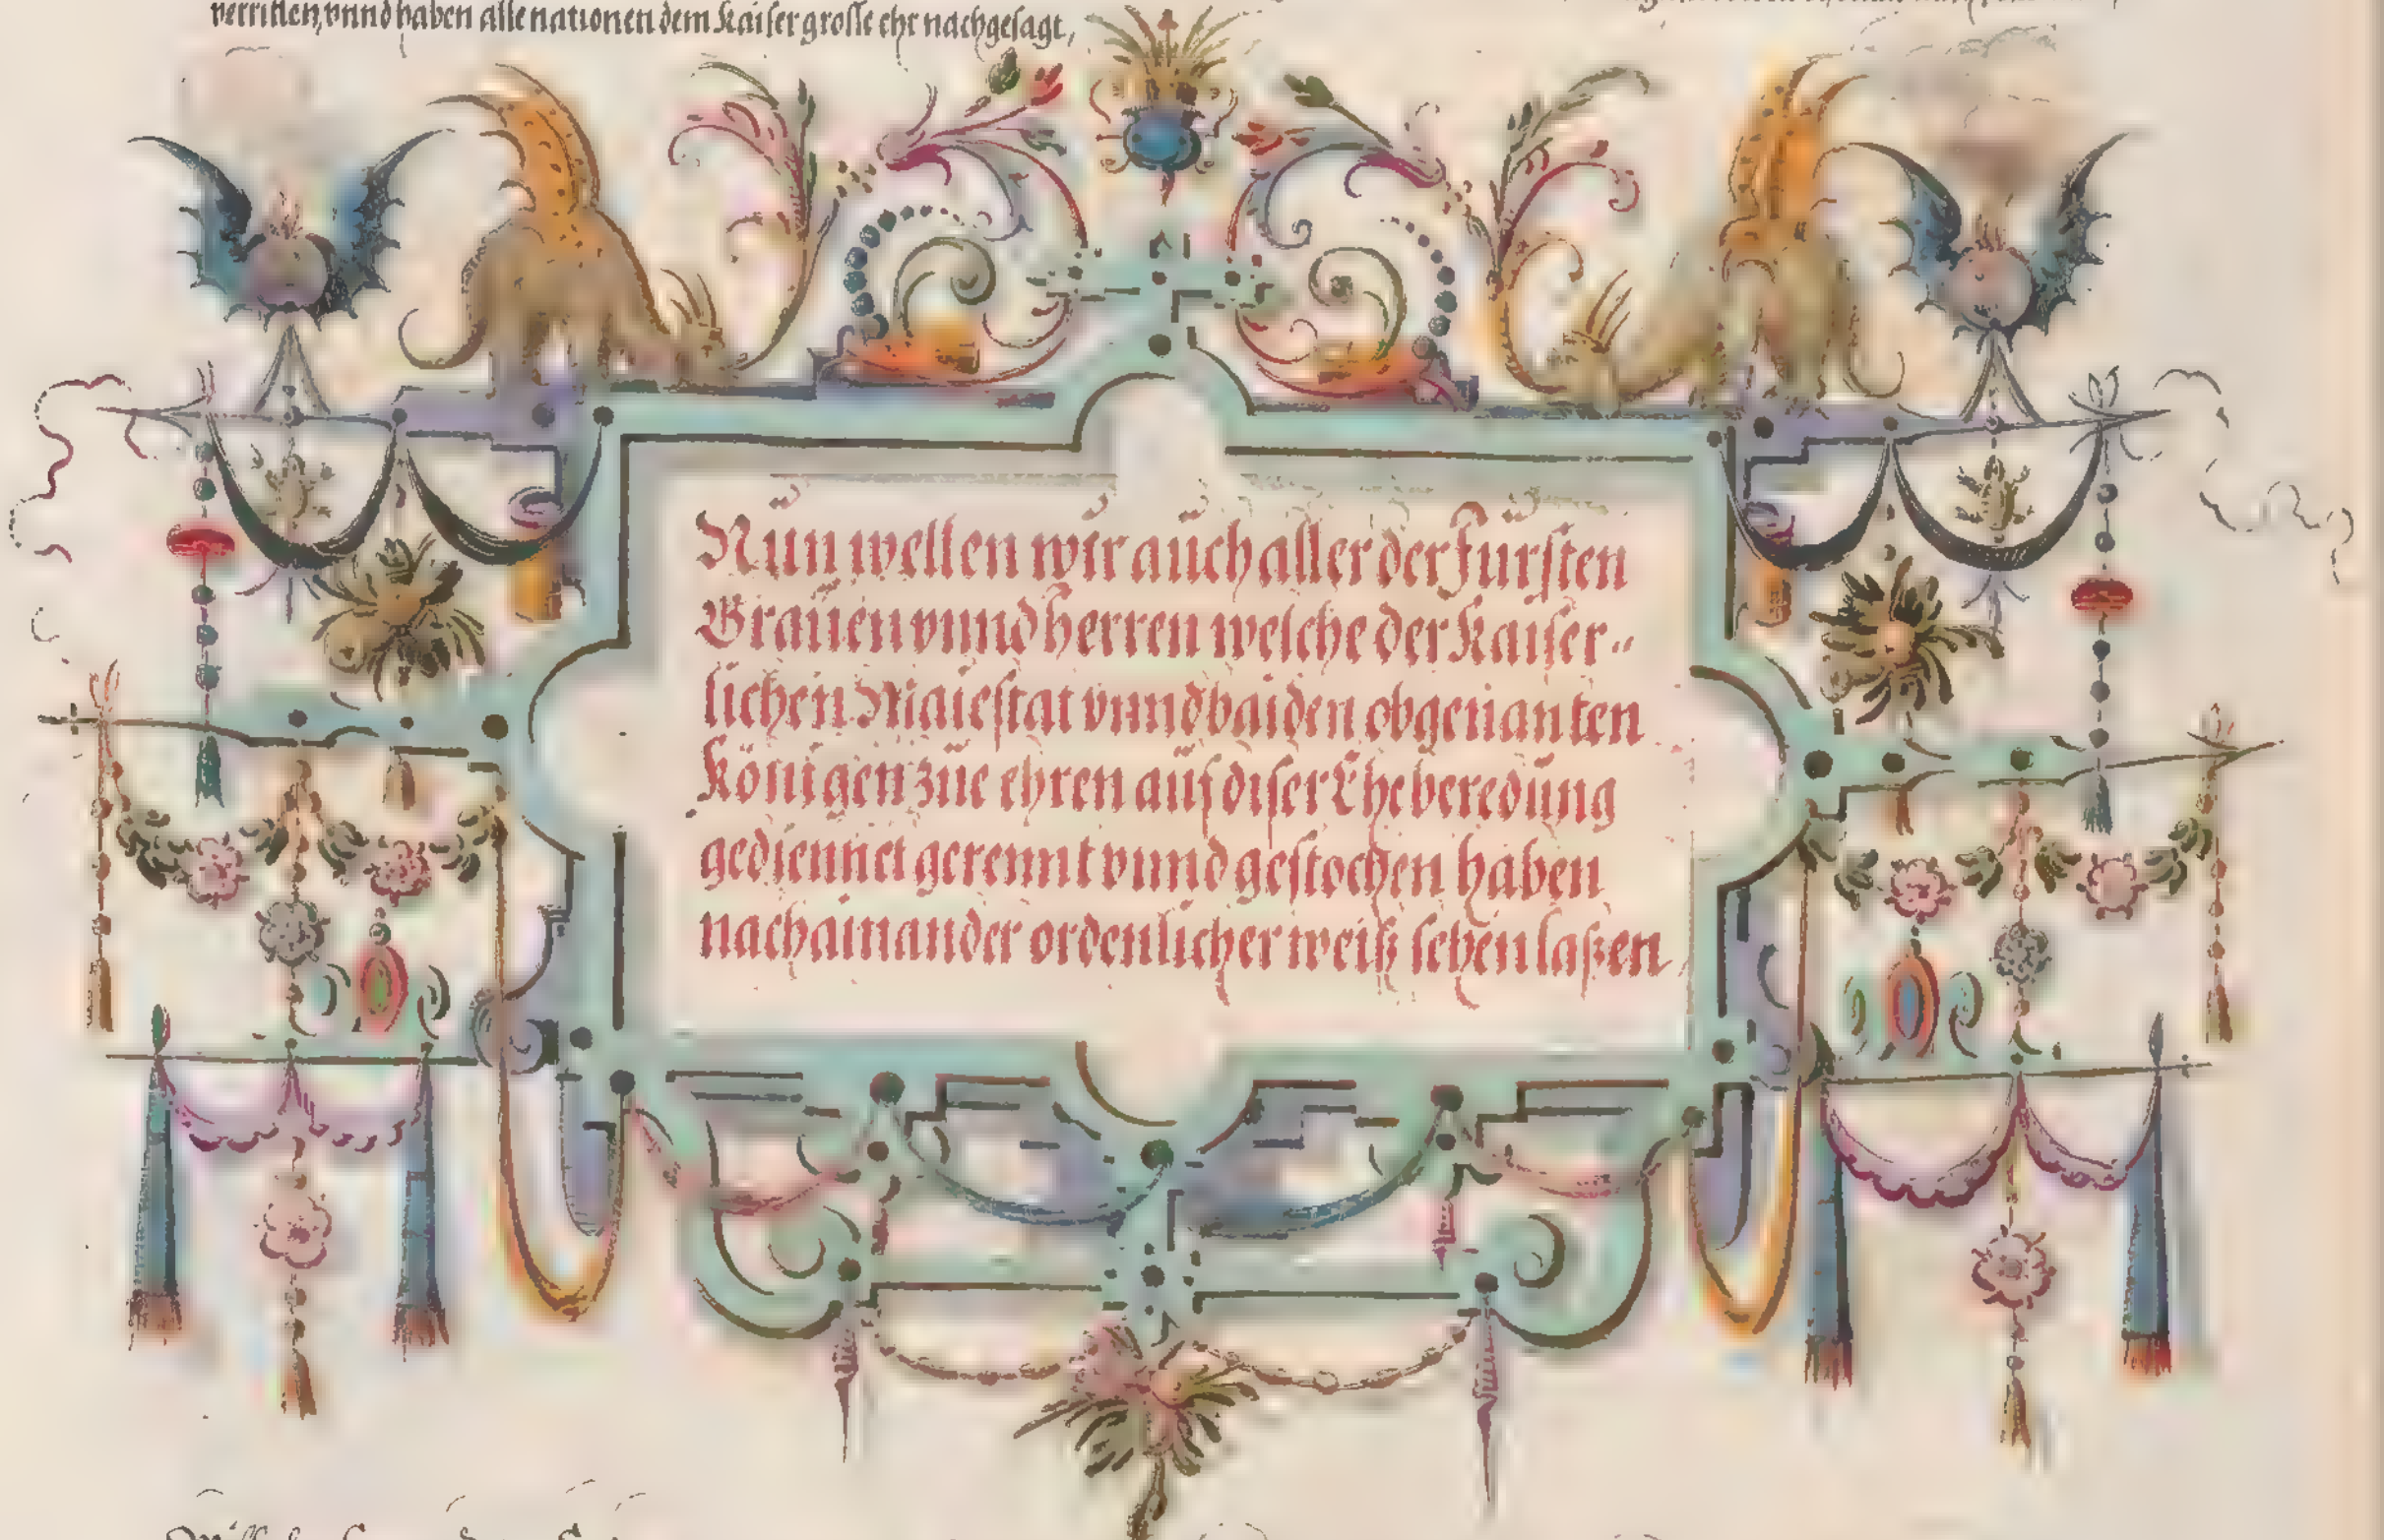 verritten, vnnd haben alle nationen dem Kaiser grosse ehr nachgesagt,
Nŭn wellen wir aŭch aller der Fürsten
Graŭen vnnd herren welche der Kaiser-
lichen Maiestat vnnd baiden obgenanten
Königen zŭe ehren aŭf diser Eheberedŭng
gediennet gerennt vnnd gestochen haben
nachainander ordenlicher weiß sehen laßen